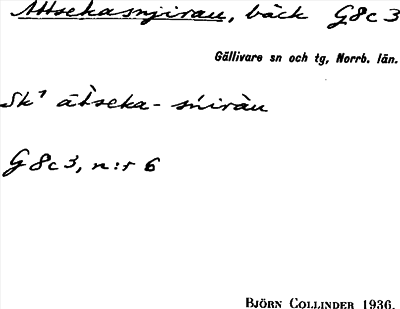 Attsekasnjirau, bäck G8c3
Gällivare sn och tg, Norrb. län.
Sk¹ ātseka- sńiràu
G8c3, n:r 6
BJÖRN COLLINDER 1936.